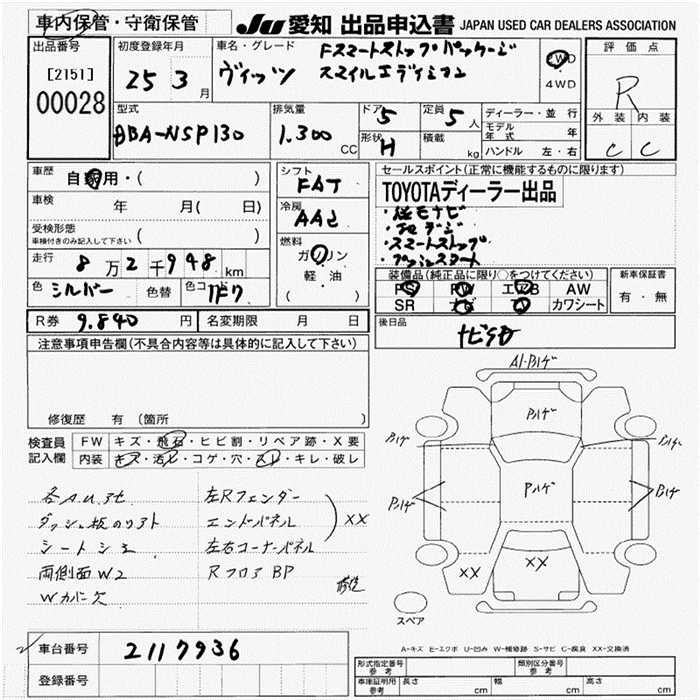 車内保管・守衛保管
JU 愛知 出品申込書 JAPAN USED CAR DEALERS ASSOCIATION
出品番号
[2151]
00028
初度登録年月
25 3 月
車名・グレード
Fスマートストップパッケージ
ヴィッツ スマイルエディション
2WD
4WD
評価点
R
外装 内装
C C
型式
DBA-NSP130
排気量
1.300 CC
ドア 5
形状 H
定員 5 人
積載 kg
ディーラー・並行
モデル年式 年
ハンドル 左・右
車歴
自家用・( )
車検 年 月( 日)
受検形態
車検付きのみ記入して下さい ( )
走行 8 万 2 千 948 km
色 シルバー 色替 色コード 1F7
シフト
FAT
冷房
AAC
燃料
ガソリン
軽・油
( )
セールスポイント(正常に機能するものに限ります)
TOYOTAディーラー出品
・社モナビ
・地デジ
・スマートストップ
・プッシュスタート
装備品(純正品に限り○をつけてください)
PS PW エアB AW
SR ナビ カワシート
新車保証書
有・無
R券 9.840 円 名変期限 月 日
後日品
ナビSD
注意事項申告欄(不具合内容等は具体的に記入して下さい)
修復歴 有 (箇所 )
検査員記入欄
FW キズ・飛石・ヒビ割・リペア跡・X要
内装 キズ・汚レ・コゲ・穴・スレ・キレ・破レ
各A.U.3セ
ダッシュ板のリフト
シートシミ
両側面W2
Wカバー欠
左Rフェンダー
エンドパネル
左右コーナーパネル
RフロアBP
XX
修復
A1・Pハゲ
Pハゲ
Pハゲ
Pハゲ
Pハゲ
Pハゲ
Bハゲ
XX
XX
スペア
A-キズ E-エクボ U-凹み W-補修跡 S-サビ C-腐食 XX-交換済
車台番号 2117936
登録番号
形式指定番号 参考
類別区分番号 参考
車庫証明用 参考 長さ cm 幅 cm 高さ cm